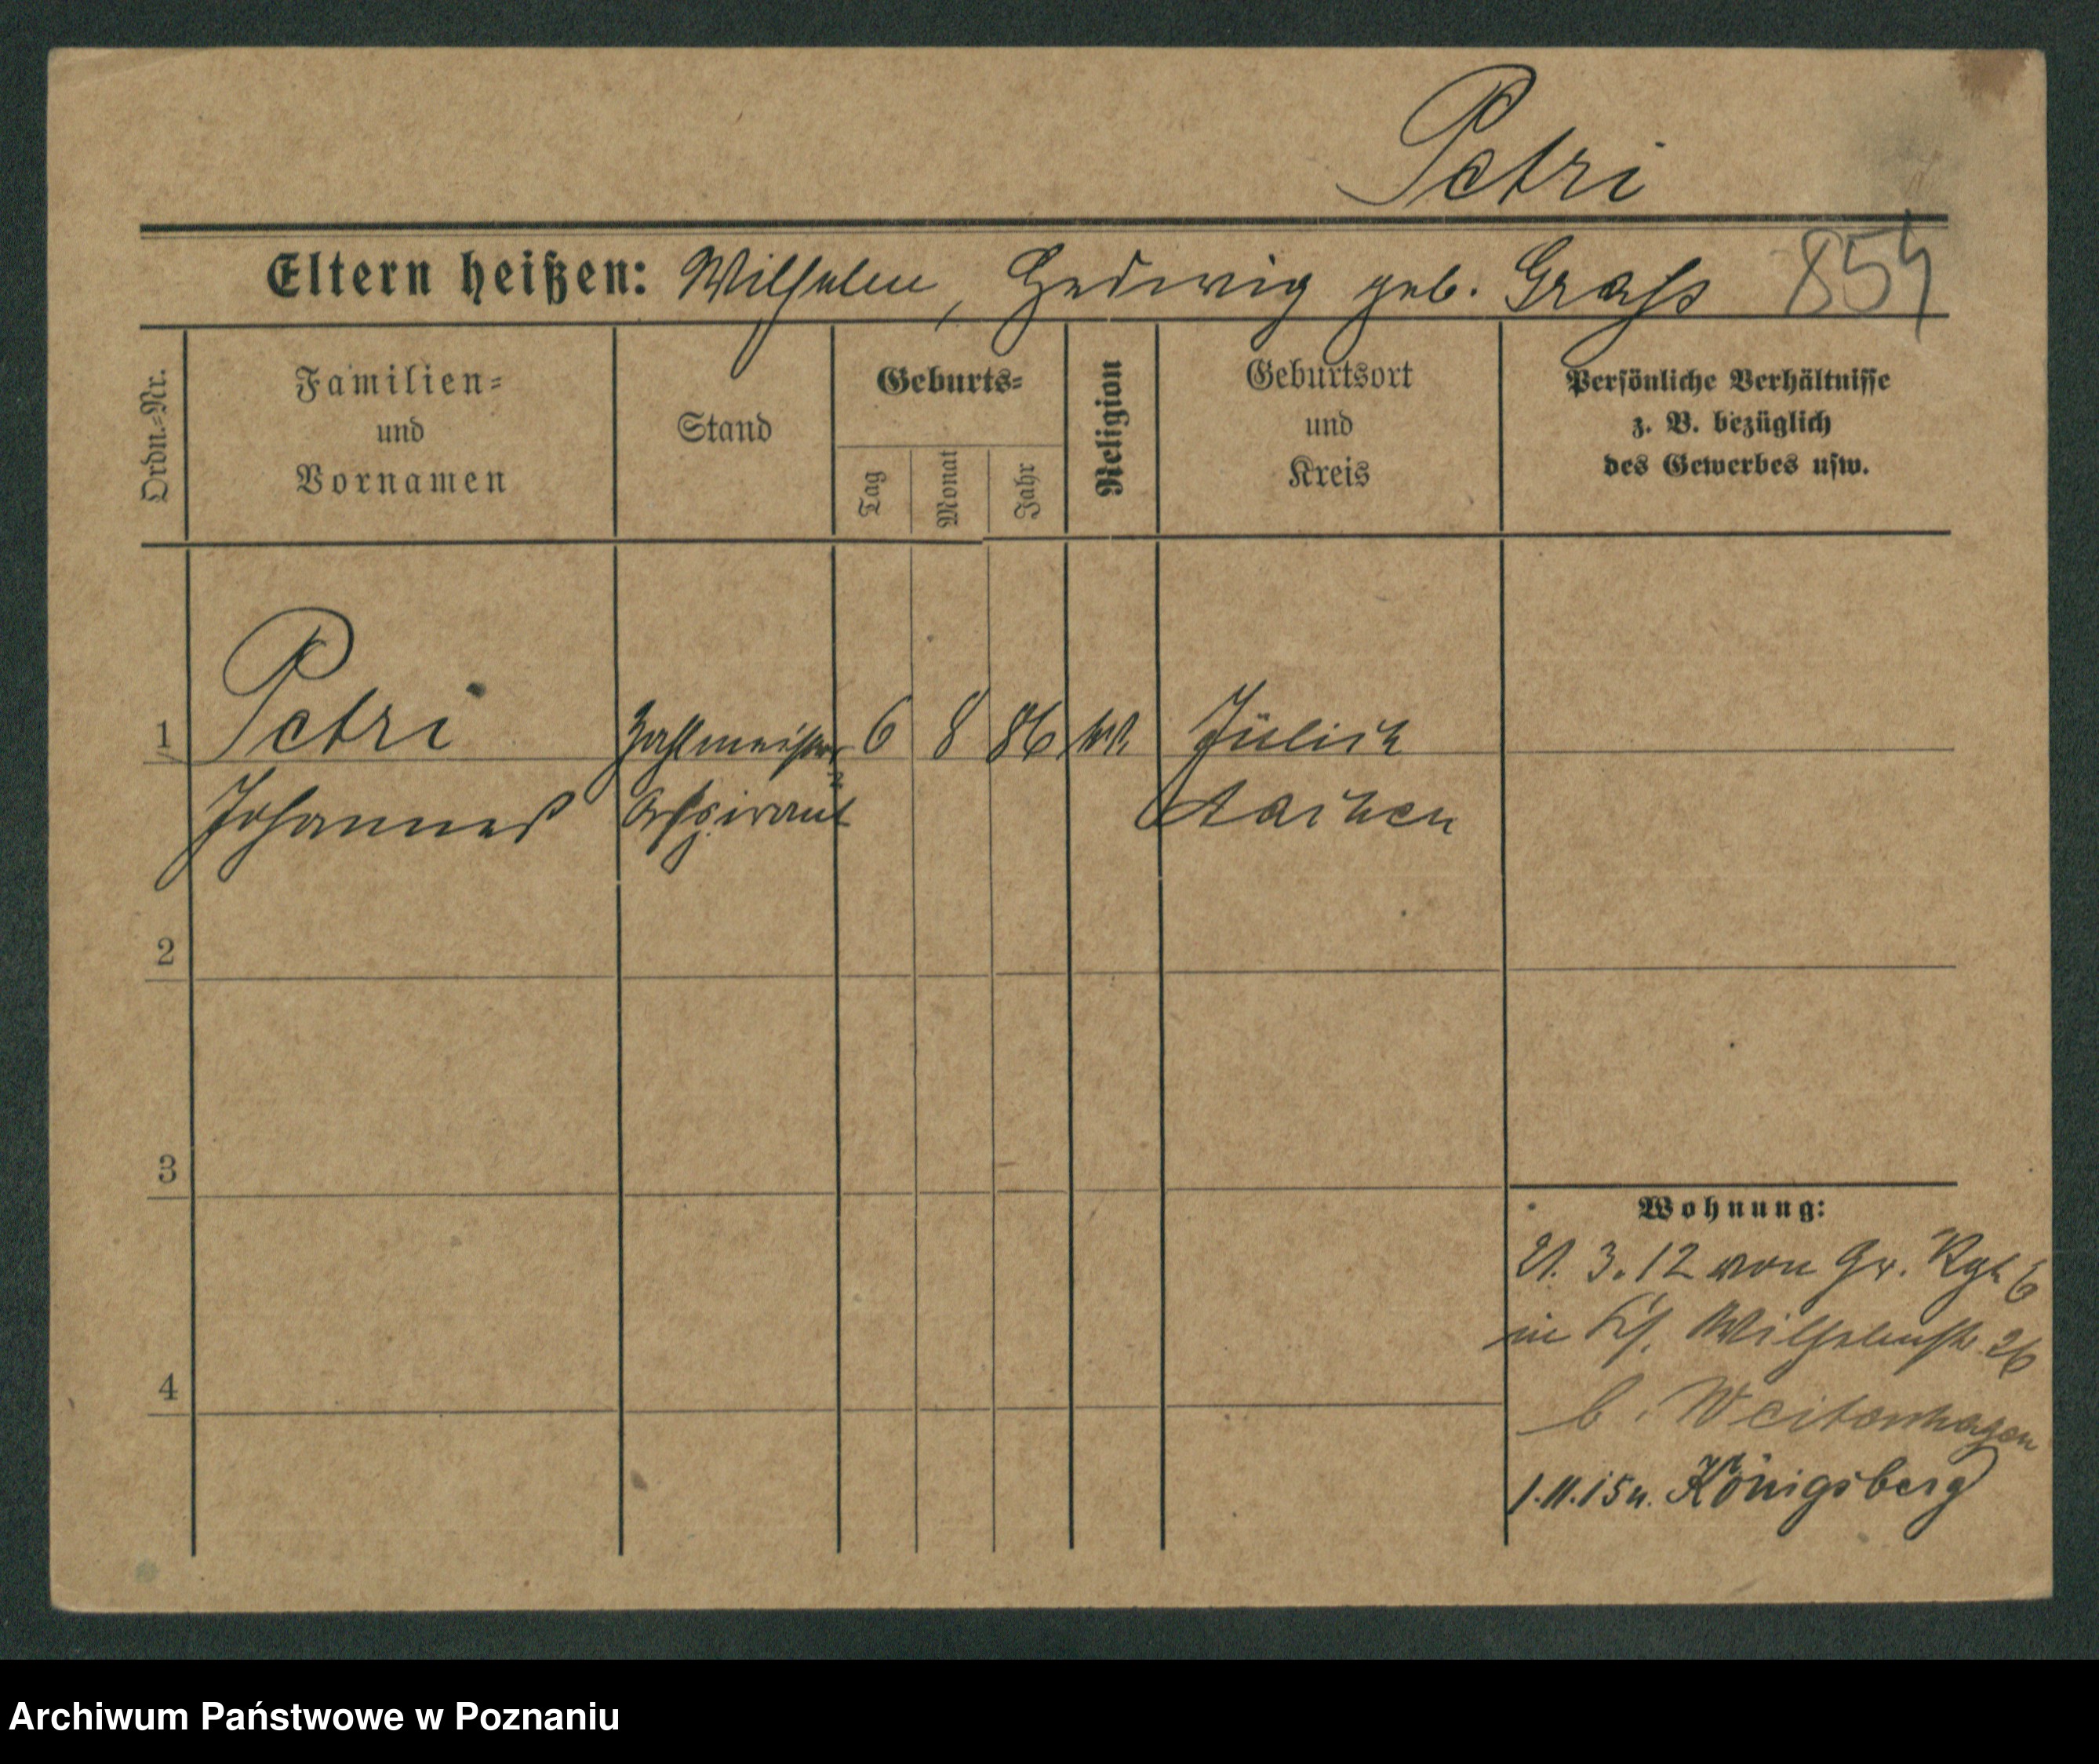 Petri
Eltern heißen: Wilhelm, Hedwig geb. Graß 854
Ordn.-Nr.
Familien-
und
Vornamen
Stand
Geburts-
Tag
Monat
Jahr
Religion
Geburtsort
und
Kreis
Persönliche Verhältnisse
z. B. bezüglich
des Gewerbes usw.
1 Petri Zahlmeister 6 8 86 Jülich
Johannes Aspirant Aachen
2
3
4
Wohnung:
21. 3. 12 von Gr. Rgt 6
in Wilhelmstr. 26
b. Weitenhagen
1.11.15 n. Königsberg
Archiwum Państwowe w Poznaniu